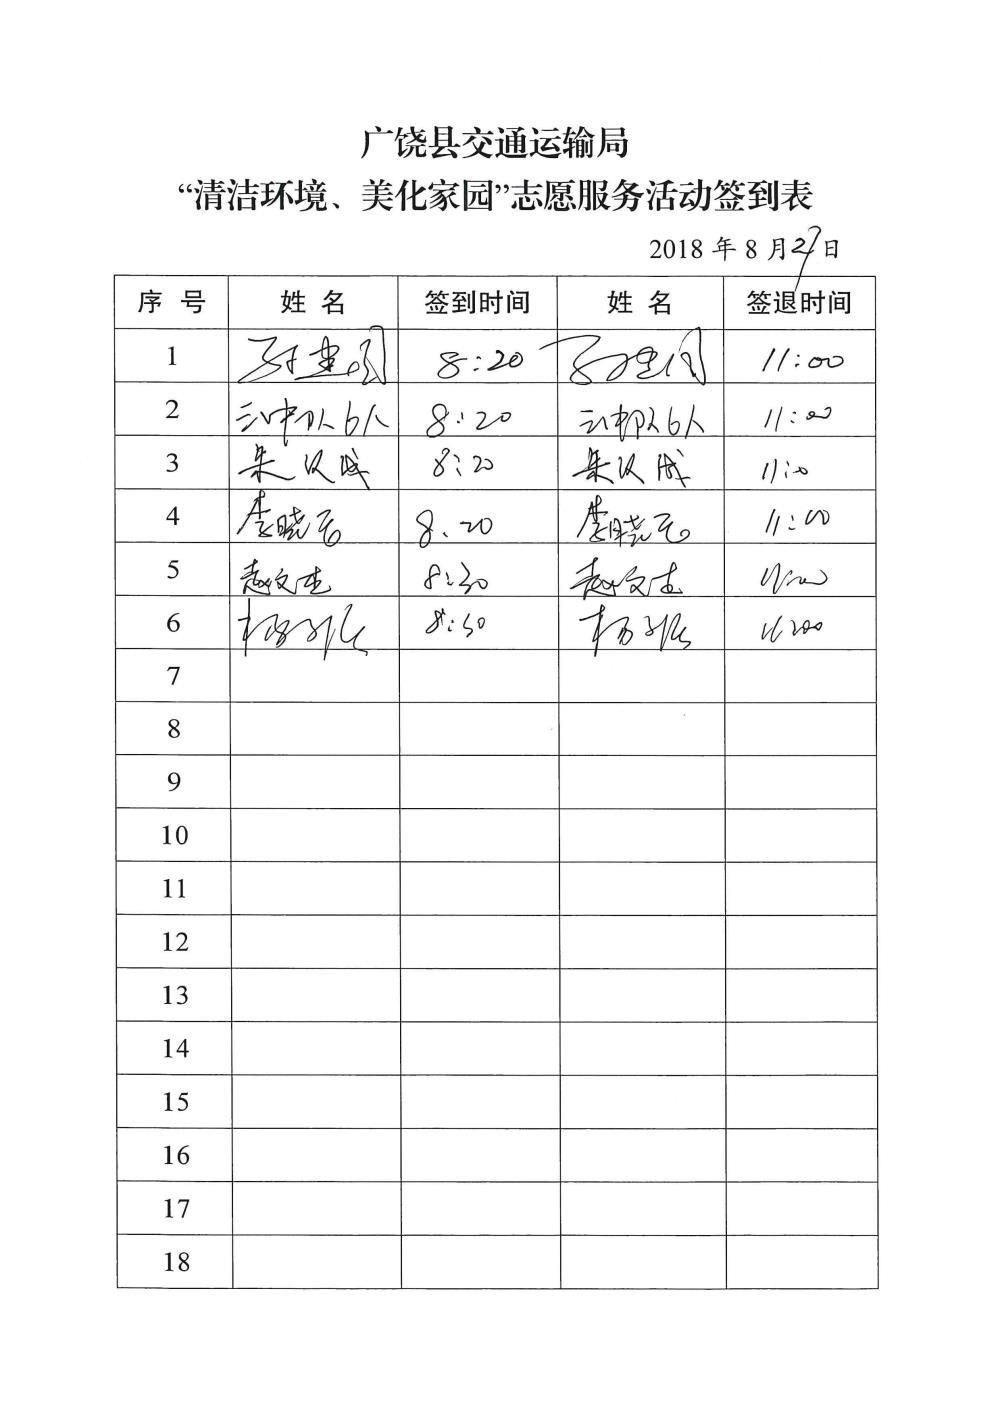 广饶县交通运输局
“清洁环境、美化家园”志愿服务活动签到表
2018 年 8 月 27 日
序 号 姓 名 签到时间 姓 名 签退时间
1 8:20 11:00
2 三中队6人 8:20 三中队6人 11:00
3 朱汉成 8:20 朱汉成 11:0
4 李晓 8:20 李晓 11:00
5 赵文生 8:30 赵文生 11:00
6 杨 8:30 杨 11:00
7
8
9
10
11
12
13
14
15
16
17
18